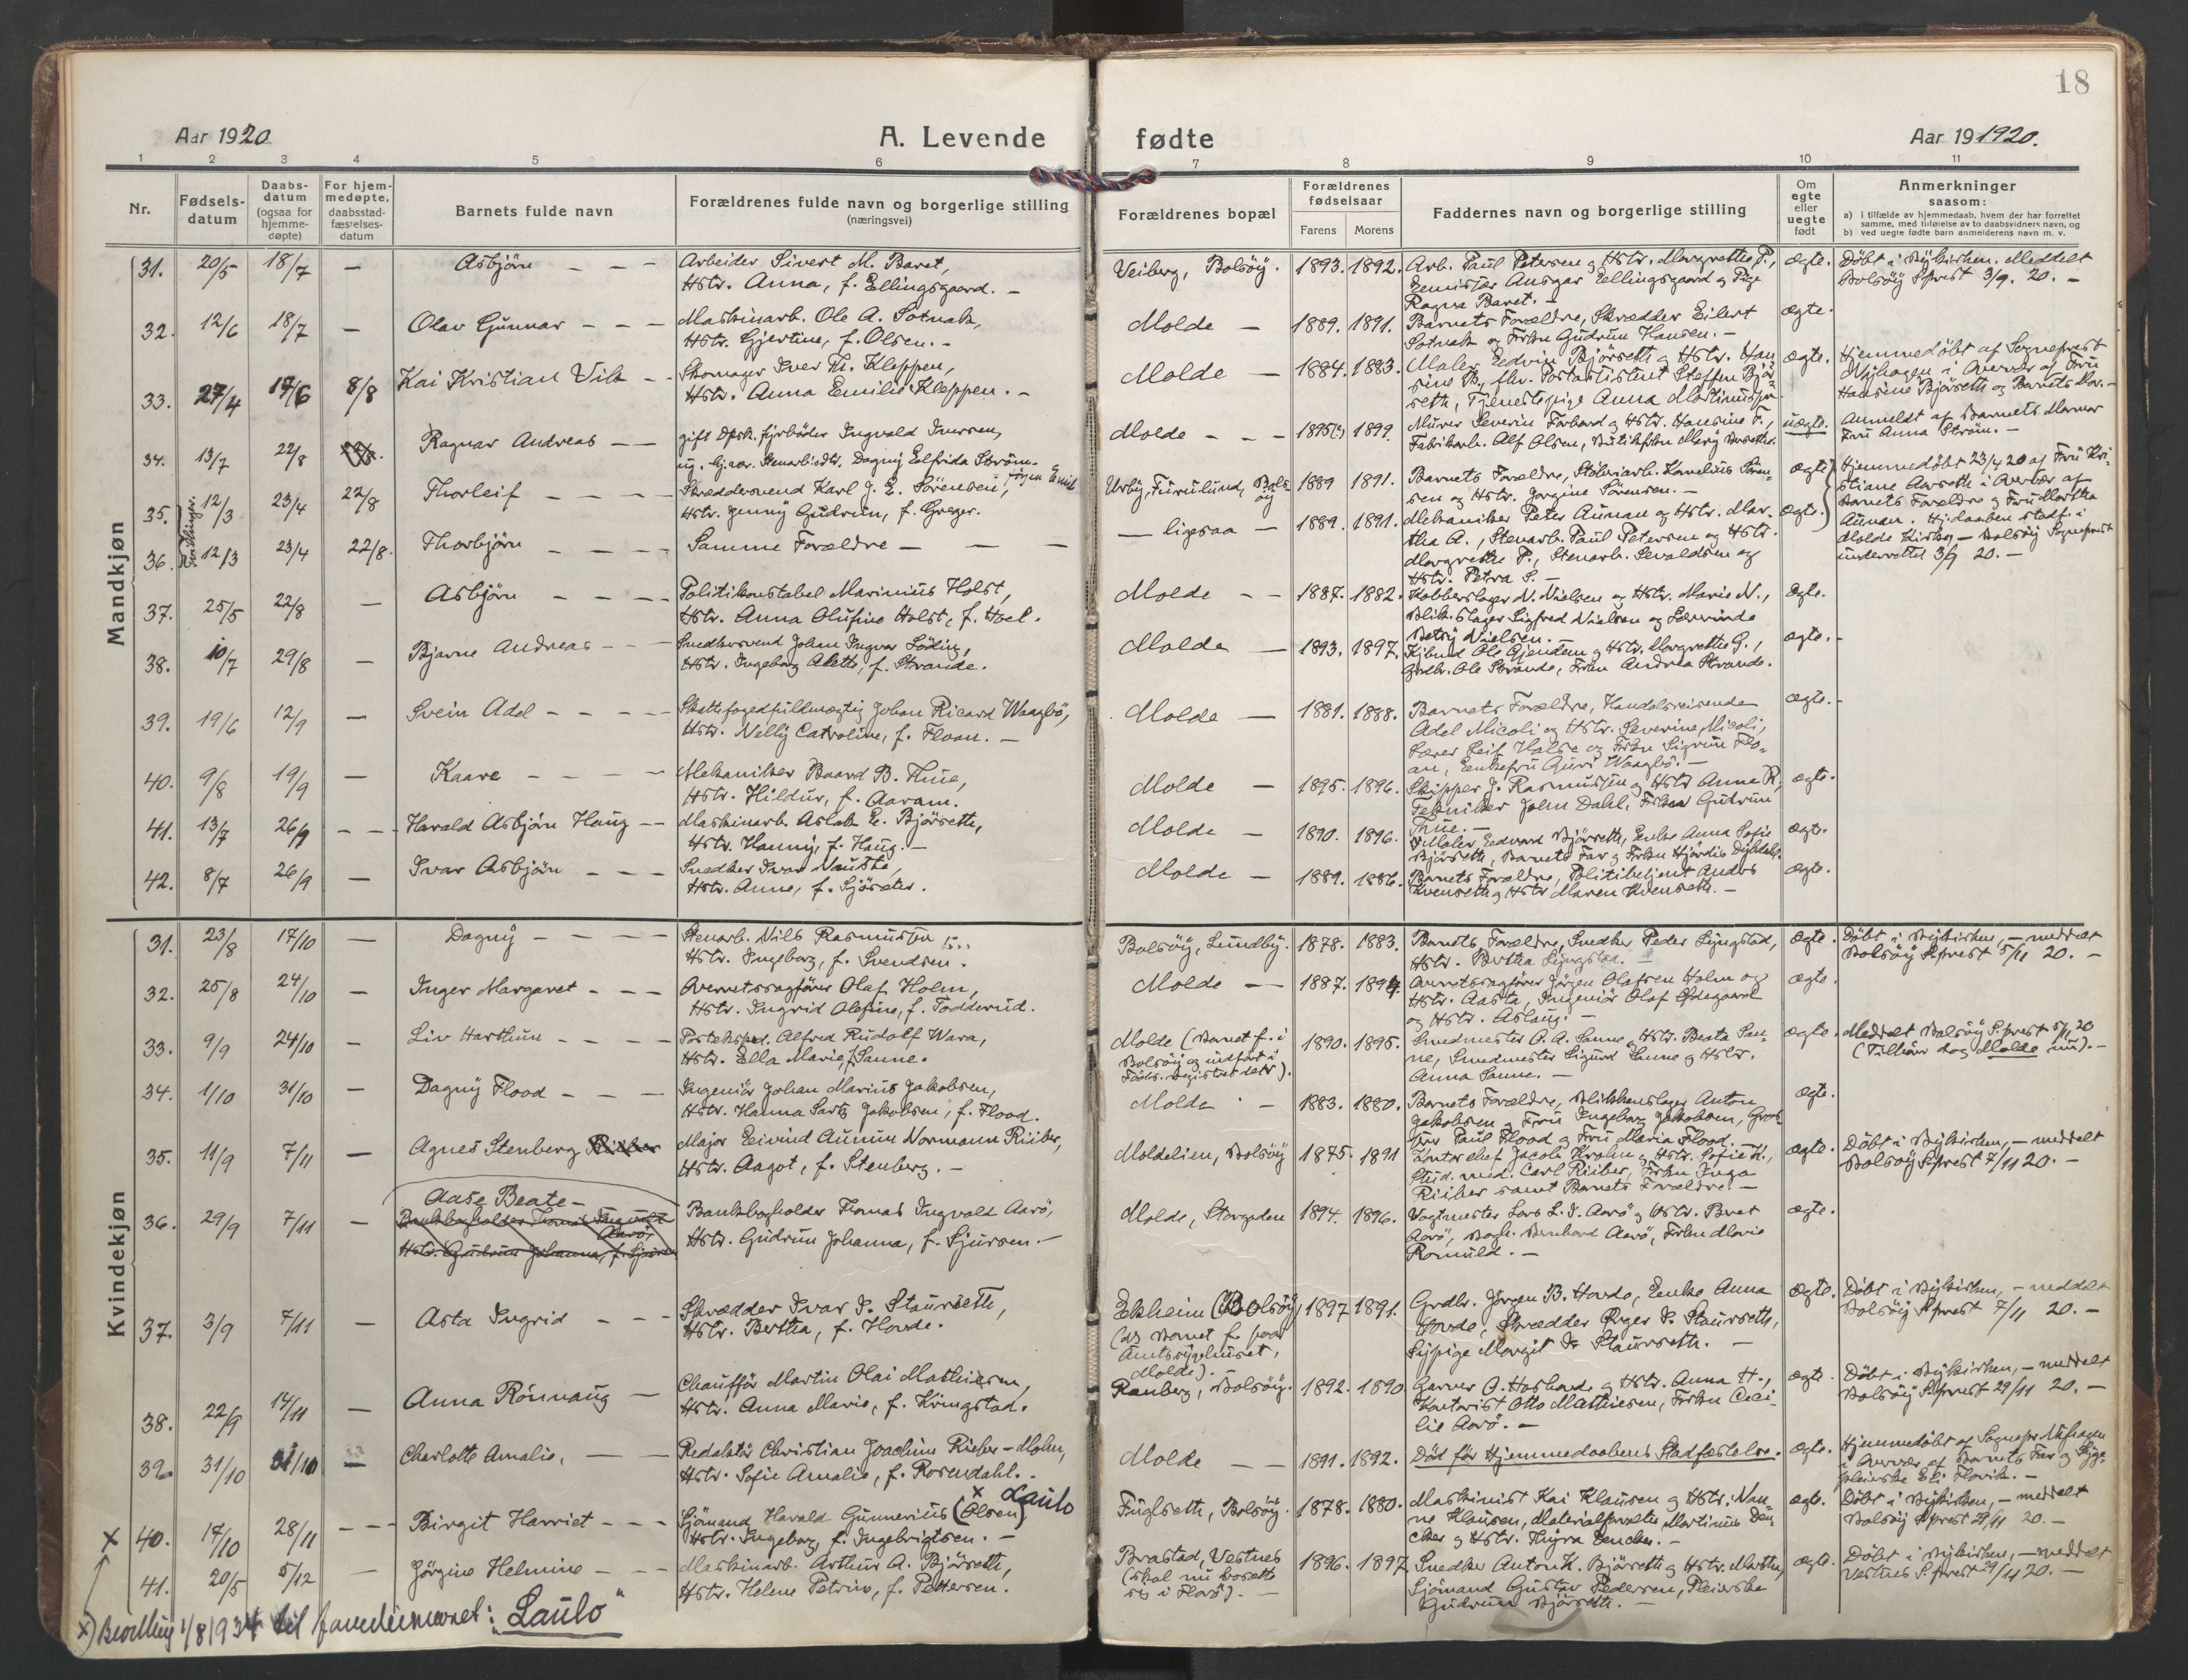 18
Aar 1920
A. Levende
fødte
Aar 19 1920.
1 2 3 4 5 6 7 8 9 10 11
Nr.
Fødsels-
datum
Daabs-
datum
(ogsaa for
hjemme-
døpte)
For hjem-
medøpte,
daabsstad-
fæstelses-
datum
Barnets fulde navn
Forældrenes fulde navn og borgerlige stilling
(næringsvei)
Forældrenes bopæl
Forældrenes
fødselsaar
Farens Morens
Faddernes navn og borgerlige stilling
Om
egte
eller
uegte
født
Anmerkninger
saasom:
a) i tilfælde av hjemmedaab, hvem der har forrettet
samme, med tilføielse av to daabsvidners navn, og
b) ved uegte fødte barn anmelderens navn m. v.
Mandkjøn
31. 20/5 18/7 — Asbjörn — — —
Arbeider Sivert M. Baret,
Hstr. Anna, f. Ellingsgaard. —
Veiberg, Bolsöy. 1893. 1892.
Arb. Paul Petersen og Hstr. Margrethe P.,
Ansgar Ellingsgaard og Pige
Ragna Baret. —
ægte.
Döbt i Nykirken. Meddelt
Bolsöy S.prest 3/9. 20. —
32. 12/6 18/7 — Olav Gunnar — — —
Maskinarb. Ole A. Sotnak,
Hstr. Gjertine, f. Olsen. —
Molde — 1889. 1891.
Barnets Forældre, Skrædder Eilert
Sotnak og Frkn Gudrun Hansen. —
ægte.
33. 27/4 17/6 8/8 Kai Kristian Vik — —
Skomager Iver Th. Kleppen,
Hstr. Anna Emilie Kleppen. —
Molde — 1884. 1883.
Maler Edvin Björseth og Hstr. Han
sine B., Postassistent Steffen Björ
seth, Tjenestepige Anna
ægte.
Hjemmedöbt af Sogneprest
Nyhagen i Overvær af Fru
Hansine Björseth og Barnets Mor. —
34. 13/7 22/8 Ragnar Andreas — —
gift Dpsk. fyrböder Ingvald Iversen,
ug. Dagny Elfrida Ström.
Molde — — — 1895(?) 1899.
Murer Severin Forbord og Hstr. Hansine F.,
Fabrikarb. Alf Olsen,
uægte.
Anmeldt af Barnets Mormor
Fru Anna Ström. —
Tvillinger
35. 12/3 23/4 22/8 Thorleif — — — —
Jörgen Emil
Skræddersvend Karl J. E. Sörensen,
Hstr. Jenny Gudrun, f. Greger.
Furulund, Bols-
öy 1889 1891.
Barnets Forældre, Kornelius Sören-
sen og Hstr. Jorgine Sörensen. —
ægte
Hjemmedöbt 23/4 20 af Fru Kri-
stiane Aarseth i Overvær af
Barnets Forældre og Fru Martha
Aunan. Hj.daaben stadf. i
Molde Kirke, — Bolsöy Sogneprest
underrettet 3/9 20. —
36. 12/3 23/4 22/8. Thorbjörn — — — —
Samme Forældre — — —
— ligesaa — 1889. 1891.
Mekaniker Peter Aunan og Hstr. Mar-
tha A., Stenarb. Paul Petersen og Hstr.
Margrethe P., Stenarb. Sevaldsen og
Hstr. Petra S. —
ægte.
37. 25/5 22/8 — Asbjörn — — — —
Politikonstabel Marinius Holst,
Hstr. Anna Olufine Holst, f. Hoel.
Molde — — 1887. 1882.
Kobberslager N. Nielsen og Hstr. Marie N.,
Blikslager Sigfred Nielsen og Lærerinde
Betsy Nielsen. —
ægte.
38. 10/7 29/8 — Bjarne Andreas — — —
Snedkersvend Johan Ingvar Söding,
Hstr. Ingeborg Aleth, f. Strande.
Molde — 1893. 1897.
Kjbmd Ole Gjendem og Hstr. Margrethe G.,
Grdbr. Ole Strande, Frkn Andrea Strande.
ægte. —
39. 19/6 12/9 — Svein Adel — — — —
Skattefogedfuldmægtig Johan Ricard Waagbö,
Hstr. Nelly Catroline, f. Floan. —
Molde — 1881. 1888.
Barnets Forældre, Handelsreisende
Adel Micoli og Hstr. Severine Micoli,
Lærer Leif Halse og Frkn Sigrun Flo-
an, Enkefru Guri Waagbö. —
ægte. —
40. 9/8 19/9 — Kaare — — — —
Mekaniker Baard B. Thue,
Hstr. Hildur, f. Aaram.
Molde — 1895. 1896.
Skipper J. Rasmussen og Hstr Anna R,
Tekniker John Dahl, Frkn Gudrun
Thue. —
ægte.
41. 13/7 26/9 — — Harald Asbjörn Haug — —
Maskinarb. Aslak E. Björseth,
Hstr. Hanny, f. Haug. —
Molde — 1890. 1896.
Maler Edvard Björseth, Enke Anna Sofie
Björseth, Barnets Far og Frkn Hjördis
ægte.
42. 8/7 26/9 — Ivar Asbjörn — — —
Snedker Ivar Nauste,
Hstr. Anne, f. Sjöseter.
Molde — 1889. 1886.
Barnets Forældre, Politibetjent Anders
Kvenseth og Hstr Maren Kvenseth. —
ægte.
Kvindekjøn
31. 23/8 17/10 — Dagny — — — —
Stenarb. Nils Rasmussen
Hstr. Ingeborg, f. Svendsen.
Bolsöy, Lundby. 1878. 1883.
Barnets Forældre, Snedker Peder Lyngstad,
Hstr. Bertha Lyngstad.
ægte.
Döbt i Nykirken, — meddelt
Bolsöy S.prest 5/11 20. —
32. 25/8 24/10 — Inger Margaret — — —
Overretssagförer Olaf Holm,
Hstr. Ingrid Olefine, f. Fodderud.
Molde — — 1887. 1894.
Overretssagförer Jörgen Olafsen Holm og
Hstr. Aasta, Ingeniör Olaf Ödegaard
og Hstr. Aslaug. —
ægte.
33. 9/9 24/10 — Liv Harthun — — — —
Postekspd. Alfred Rudolf Wara,
Hstr. Ella Marie, f. Sanne.
Molde (Barnet f. i
Bolsöy og indfört i
Föds. registret der). 1890. 1895.
Smedmester O. A. Sanne og Hstr. Beata San-
ne, Smedmester Sigurd Sanne og Hstr.
Anna Sanne. —
ægte.
Meddelt Bolsöy S.prest 5/11 20
(Tilhörer dog Molde nu). —
34. 1/10 31/10 — Dagny Flood — — —
Ingeniör Johan Marius Jakobsen,
Hstr. Hanna Jakobsen, f. Flood.
Molde — 1883. 1880.
Barnets Forældre, Blikkenslager Anton
Jakobsen og Fru Ingeborg Jakobsen, Gros-
Paul Flood og Fru Maria Flood.
ægte.
35. 11/9 7/11 — Agnes Stenberg Riiber
Major Eivind Aunum Normann Riiber,
Hstr. Aagot, f. Stenberg. —
Moldelien, Bolsöy 1875. 1891
Kntorchef Jacob Krohn og Hstr. Sofie K.,
Stud. med. Carl Riiber, Frkn Inga
Riiber samt Barnets Forældre. —
ægte.
Döbt i Nykirken, — meddelt
Bolsöy S.prest 7/11 20. —
36. 29/9 7/11 — Aase Beate —
Bankbogholder Tomas Ingvald
Aarö,
Hstr. Gudrun Johanna, f. Sjurs
Bankbogholder Tomas Ingvald Aarö,
Hstr. Gudrun Johanna, f. Sjursen. —
Molde, Storgaden 1894. 1896.
Vagtmester Lars L. I. Aarö og Hstr. Beret
Aarö, Bogh. Bernhard Aarö, Frkn Marie
Romuld. —
ægte.
37. 3/9 7/11 — Asta Ingrid — — —
Skrædder Ivar I. Staurseth,
Hstr. Bertha, f. Hovde.
Ekheim (Bolsöy)
Barnet f. paa
Amtssygehuset,
Molde). 1897 1891.
Grdbr. Jörgen B. Hovde, Enke Anna
Hovde, Skrædder Roger I. Staurseth,
Sypige Margit I. Staurseth. —
ægte.
Döbt i Nykirken, — meddelt
Bolsöy S.prest 7/11 20. —
38. 22/9 14/11 — Anna Rönnaug —
Chaufför Martin Olai Mathiesen,
Hstr. Anna Marie, f. Kringstad.
Ranberg, Bolsöy. 1892. 1890
Garver O. Hoshovde og Hstr. Anna H.,
Kontorist Otto Mathiesen, Frkn Ceci-
lie Aarö. —
ægte.
Döbt i Nykirken, — meddelt
Bolsöy S.prest 29/11 20. —
39. 31/10 31/10 — Charlotte Amalie, — —
Redaktör Christian Joachim Rieber-Mohn,
Hstr. Sofie Amalie, f. Rosendahl. —
Molde — — 1891. 1892.
Död för Hjemmedaabens Stadfæstelse.
ægte.
Hjemmedöbt af Sognepr. Nyhagen
i Overvær af Barnets Far og Syge-
pleierske Eli Flovik. —
x 40. 17/10 28/11 — — — Birgit Harriet — — —
x Laulo
Sjömand Harald Gunnerius (Olsen)
Hstr. Ingeborg, f. Ingebrigtsen. —
Fuglseth, Bolsöy. 1878. 1880.
Maskinist Kai Klausen og Hstr. Nan-
na Klausen, Materialforvalter Martinus Den-
cker og Hstr. Thyra Dencker. —
ægte.
Döbt i Nykirken, — meddelt
Bolsöy S.prest 29/11 20. —
41. 20/5 5/12 — Jörgine Helmine — — —
Maskinarb. Arthur A. Björseth,
Hstr. Helene Petrine, f. Pettersen.
Brastad, Vestnes
(skal nu bosætte
sig i Florö). — 1896. 1897
Snedker Anton K. Björseth og Hstr. Marthe,
Sjömand Gustav Pedersen, Pleierske
Gudrun Björseth. —
ægte.
Döbt i Nykirken, — meddelt
Vestnes S.prest 29/11 20. —
x) Bevilling 1/8 1934 til familienavnet: „Laulo"